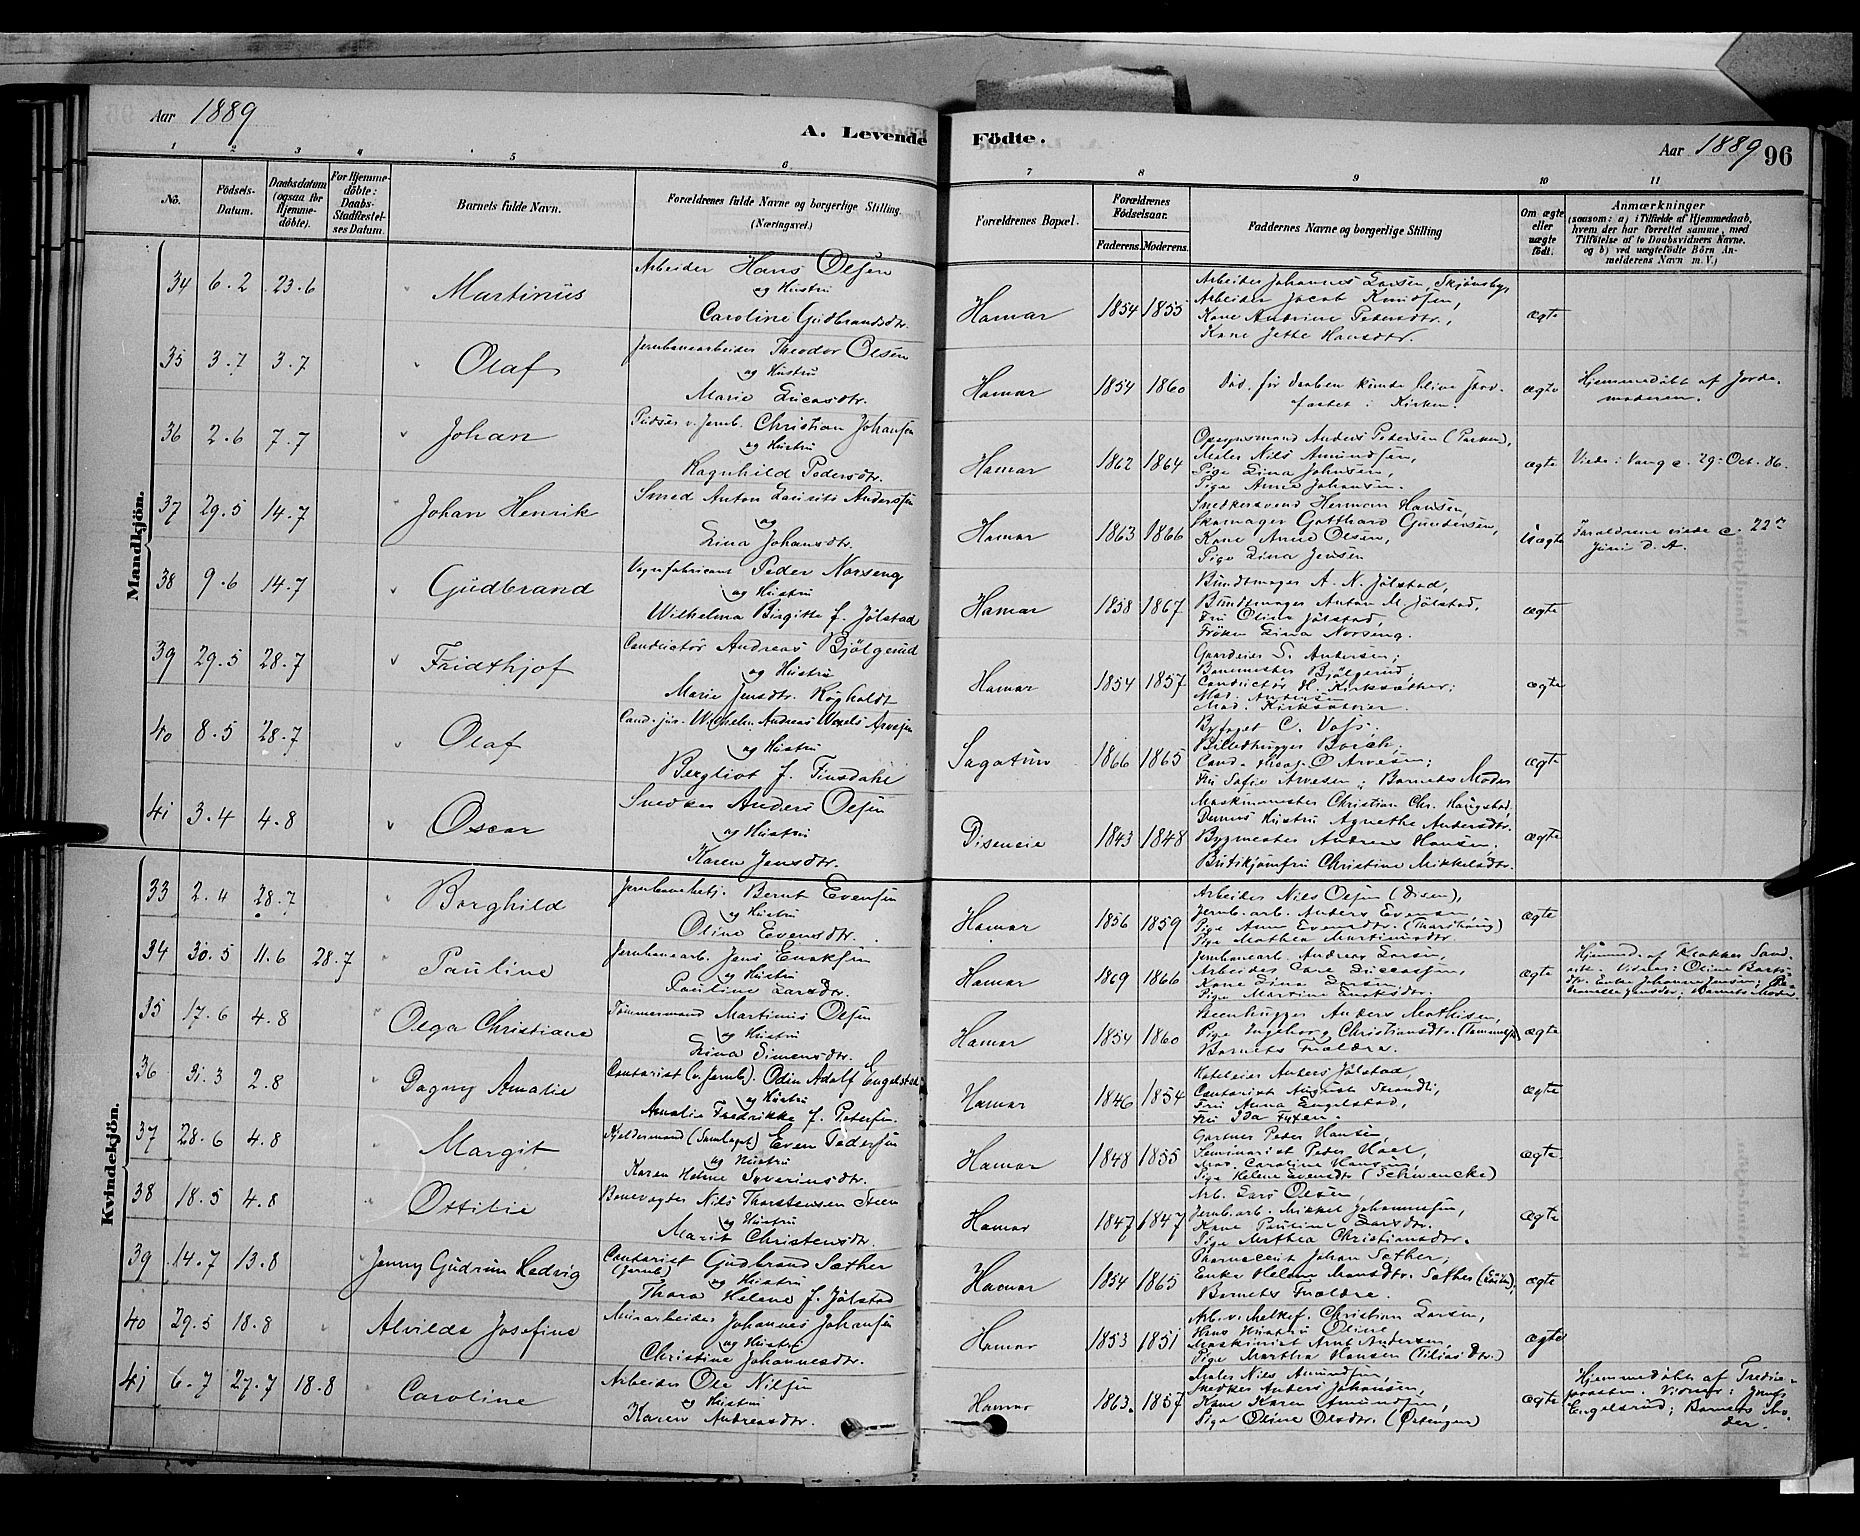 Aar 1889
A. Levende Födte.
Aar 1889 96
1 2 3 4 5 6 7 8 9 10 11
No. Födsels-Datum. Daabsdatum (ogsaa for Hjemmedöbte). For Hjemmedöbte: Daabs-Stadfæstelses Datum. Barnets fulde Navn. Forældrenes fulde Navne og borgerlige Stilling. (Næringsvei.)
Forældrenes Bopæl. Forældrenes Födselsaar. Faderens. Moderens. Faddernes Navne og borgerlige Stilling Om ægte eller uægte födt. Anmærkninger (saasom: a) i Tilfælde af Hjemmedaab, hvem der har forrettet samme, med Tilföielse af to Daabsvidners Navne, og b) ved uægtefödte Börn Anmelderens Navn m. V.)
Mandkjön.
34 6.2 23.6 Martinus Arbeider Hans Olsen
og Hustru
Caroline Gudbrandsdtr.
Hamar 1854 1855 Arbeider Johannes Larsen, Skjönsby,
Arbeider Jacob Knudsen,
Kone Andrine Pedersdtr.,
Kone Jette Hansdtr.
ægte
35 3.7 3.7 Olaf Jernbanearbeider Theodor Olsen
og Hustru
Marie Lucasdtr.
Hamar 1854 1860 Död, för daaben kunde blive stadfæstet i Kirken.
ægte Hjemmedöbt af Jordemoderen.
36 2.6 7.7 Johan Pudser v. Jernb. Christian Johansen
og Hustru
Ragnhild Pedersdtr.
Hamar 1862 1864 Opsynsmand Anders Petersen (Parken),
Maler Nils Amundsen,
Pige Lina Johnsen,
Pige Anna Johansen.
ægte Viede i Vang c. 29. Oct. 86.
37 29.5 14.7 Johan Henrik Smed Anton Laurits Anderssen
og
Lina Johansdtr.
Hamar 1863 1866 Snedkersvend Herman Hansen,
Skomager Gotthard Gundersen,
Kone Anne Olsen,
Pige Lina Jensen
Uægte Forældrene viede c. 22n Juni d. A.
38 9.6 14.7 Gudbrand Vognfabricant Peder Norseng
og Hustru
Wilhelma Birgitte f. Jölstad
Hamar 1858 1867 Bundtmager A. N. Jölstad,
Bundtmager Anton M. Jölstad,
Fru Oline Jölstad,
Fröken Lina Norseng.
ægte
39 29.5 28.7 Fridthjof Conductör Andreas Bjölgerud
og Hustru
Marie Jensdtr. Rögholdt
Hamar 1854 1857 Gaardeier S. Andersen;
Banemester Bjölgerud,
Conductör H. Kirksæther;
Mad. Andersen
Mad. Kirksæther.
ægte
40 8.5 28.7 Olaf Cand. jur. Wilhelm Andreas Wexels Arvesen
og Hustru
Bergliot f. Finsdahl
Sagatun 1866 1865 Byfoget C. Voss;
Billedhugger Borch;
Cand. theol. O Arvesen;
Fru Sofie Arvesen; Barnets Moder
ægte
41 3.4 4.8 Oscar Snedker Anders Olsen
og Hustru
Karen Jensdtr.
Diseneie 1843 1848 Maskinmester Christian Chr. Haugstad,
Dennes Hustru Agnethe Andersdtr.
Bygmester Andreas Hansen,
Butikjomfru Christine Mikkelsdtr.
ægte
Kvindekjön.
33 2.4 28.7 Borghild Jernbanebetj. Bernt Evensen
og Hustru
Oline Evensdtr.
Hamar 1856 1859 Arbeider Nils Olsen (Disen),
Jernb. arb. Anders Evensen,
Pige Anne Evensdtr.
Pige Mathea Martinusdtr.
ægte
34 30.5 11.6 28.7 Pauline Jernbanearb. Jens Enoksen
og Hustru
Pauline Larsdtr.
Hamar 1869 1866 Jernbanearb. Andreas Larsen,
Arbeider Carl Lucassen,
Kone Lina Larsen,
Pige Martine Enoksdtr.
ægte Hjemmed. af Klokker Sand
Vidner: Oline
Enke Johanne Jensen;
Barnets Moder.
35 17.6 4.8 Olga Christiane Tömmermand Martinus Olsen
og Hustru
Lina Simensdtr.
Hamar 1854 1860 Steenhugger Anders Mathisen,
Pige Ingeborg Christiansdtr.
Barnets Forældre.
ægte
36 31.3 2.8 Dagny Amalie Contorist (v. Jernb.) Odin Adolf Engelstad
og Hustru
Amalie Fredrikke f. Petersen.
Hamar 1846 1854 Hoteleier Anders Jölstad,
Contorist August Strandli,
Fru Anna Engelstad,
Fru Ida
ægte
37 28.6 4.8 Margit Kjeldermand (Samlaget) Even Pedersen
og Hustru
Karen Helene Syverinsdtr.
Hamar 1848 1855 Gartner Peter Hansen,
Seminarist Peter Hoel,
Mad. Caroline Hansen,
Pige Helene Evensdtr (Schwencke)
ægte
38 18.5 4.8 Ottilie Banevogter Nils Thorstensen Steen
og Hustru
Marit Christensdtr.
Hamar 1847 1847 Arb. Lars Olsen,
Jernb. arb. Mikkel Johannessen,
Kone Pauline Larsdtr.
Pige Mathea Christiansdtr.
ægte
39 14.7 13.8 Jenny Gudrun Hedvig Contorist (Jernb.) Gudbrand Sæther
og Hustru
Thora Helene f. Jölstad
Hamar 1854 1865 Pharmaceut Johan Sæther;
Enke Helene Monsdtr. Sæther
Barnets Forældre.
ægte
40 29.5 18.8 Alvilde Josefine Murarbeider Johannes Johansen
og Hustru
Christine Johannesdtr.
Hamar 1853 1851 Arb. v. Melkef. Christian Larsen,
Hans Hustru Oline,
Maskinist Arnt Andersen,
Pige Martha Hansen
ægte
41 6.7 27.7 18.8 Caroline Arbeider Ole Nilsen
og Hustru
Karen Andreasdtr.
Hamar 1863. 1857 Maler Nils Amundsen,
Snedker Anders Johansen,
Kone Karen Amundsen,
Pige Oline Olsdtr (Östengen)
ægte Hjemmedöbt af
Vidner:
Engelsrud; Barnets Moder.